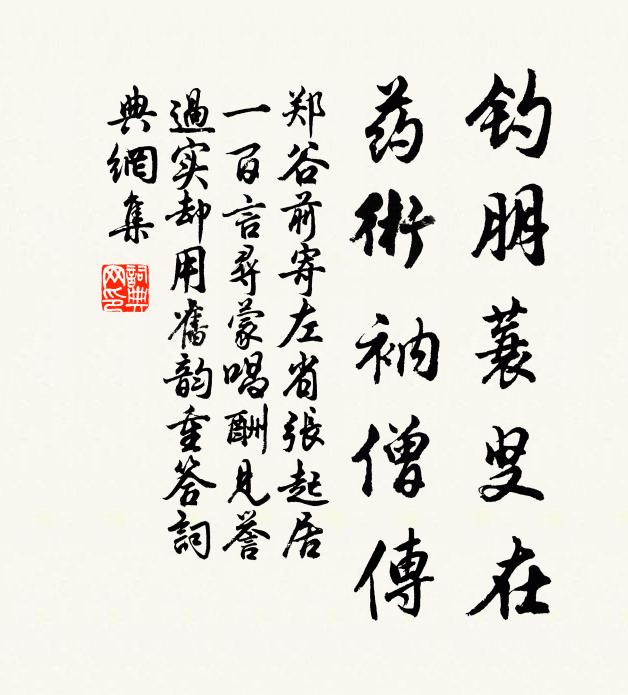 钓朋蓑叟在
药術衲僧傳
郑谷前寄左省張起居
一百言尋蒙唱酬見誉
過实却用舊韵重答詞
典網集
詞典网印